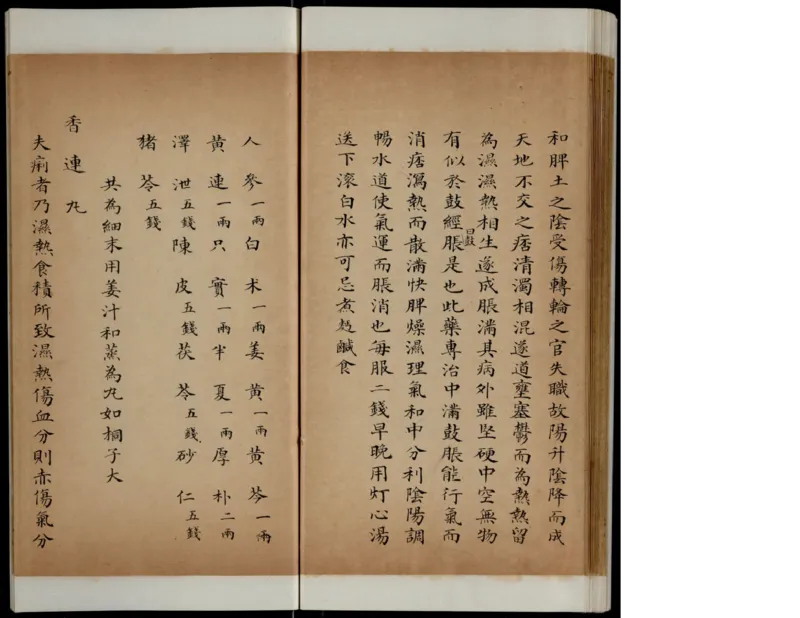 和脾土之陰受傷轉輪之官失職故陽升陰降而成
天地不交之痞清濁相混遂道壅塞鬱而為熱熱留
為濕濕熱相生遂成脹滿其病外雖堅硬中空無物
有似於鼓經曰鼓脹是也此藥專治中滿鼓脹能行氣而
消痞瀉熱而散滿快脾燥濕理氣和中分利陰陽調
暢水道使氣運而脹消也每服二錢早晚用灯心湯
送下滾白水亦可忌煮麪鹹食
人參一兩白朮一兩姜黃一兩黃芩一兩
黃連一兩只實一兩半夏一兩厚朴二兩
澤泄五錢陳皮五錢茯苓五錢砂仁五錢
豬苓五錢
共為細末用姜汁和蒸為丸如桐子大
香連丸
夫痢者乃濕熱食積所致濕熱傷血分則赤傷氣分